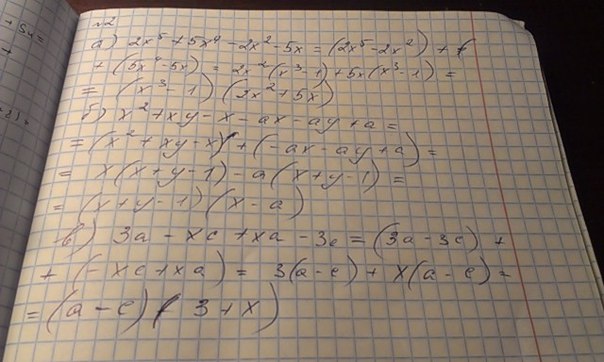 №2
а) 2x⁵ + 5x⁴ - 2x² - 5x = (2x⁵ - 2x²) + (
+ (5x⁴ - 5x) = 2x²(x³ - 1) + 5x(x³ - 1) =
= (x³ - 1)(2x² + 5x)
б) x² + xy - x - ax - ay + a =
= (x² + xy - x) + (-ax - ay + a) =
= x(x + y - 1) - a(x + y - 1) =
= (x + y - 1)(x - a)
в) 3a - xc + xa - 3c = (3a - 3c) +
+ (- xc + xa) = 3(a - c) + x(a - c) =
= (a - c)(3 + x)